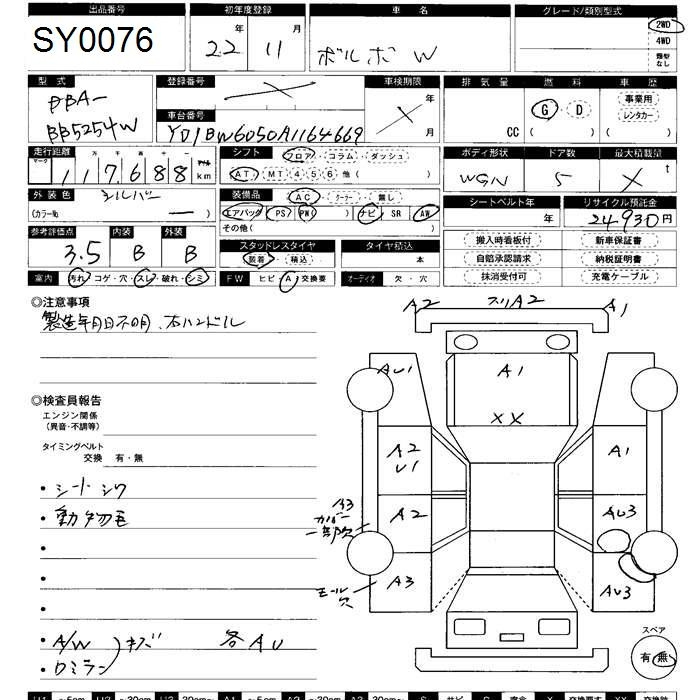 出品番号 初年度登録 車名 グレード/類別型式
SY0076 22年 11月 ボルボ W 2WD
4WD
類型なし
型式 登録番号 車検期限 排気量 燃料 車歴
DBA- 年 G・D 事業用
BB5254W 車台番号 CC ( ) レンタカー
YV1BW6050A1164669 月 ( )
走行距離 シフト フロア・コラム・ダッシュ ボディ形状 ドア数 最大積載量
マーク 十万千百十一 マイル
117688 km AT・MT 4 5 6 他( ) WGN 5 X t
外装色 シルバー 装備品 AC・クーラー・無し シートベルト年 リサイクル預託金
(カラーNo. ー ) エアバッグ PS PW( ) ナビ SR AW 年 24930円
その他(
参考評価点 内装 外装 搬入時看板付 新車保証書
3.5 B B スタッドレスタイヤ タイヤ積込 自賠承認請求 納税証明書
装着・積込 本 抹消受付可 充電ケーブル
室内 汚れ・コゲ・穴・スレ・破れ・シミ FW ヒビ・A・交換要 オーディオ 欠・穴
◎注意事項
製造年月日不明、右ハンドル
A2 スリA2 A1
AU1 A1
XX
◎検査員報告
エンジン関係
(異音・不調等)
タイミングベルト
交換 有・無
A2 A1
U1
・シートシワ
・動物毛
A3 A2 AU3
カバー
一部欠
モール A3 AU3
欠
・A/W キズ 各AU
・ロミラン
スペア
有・無